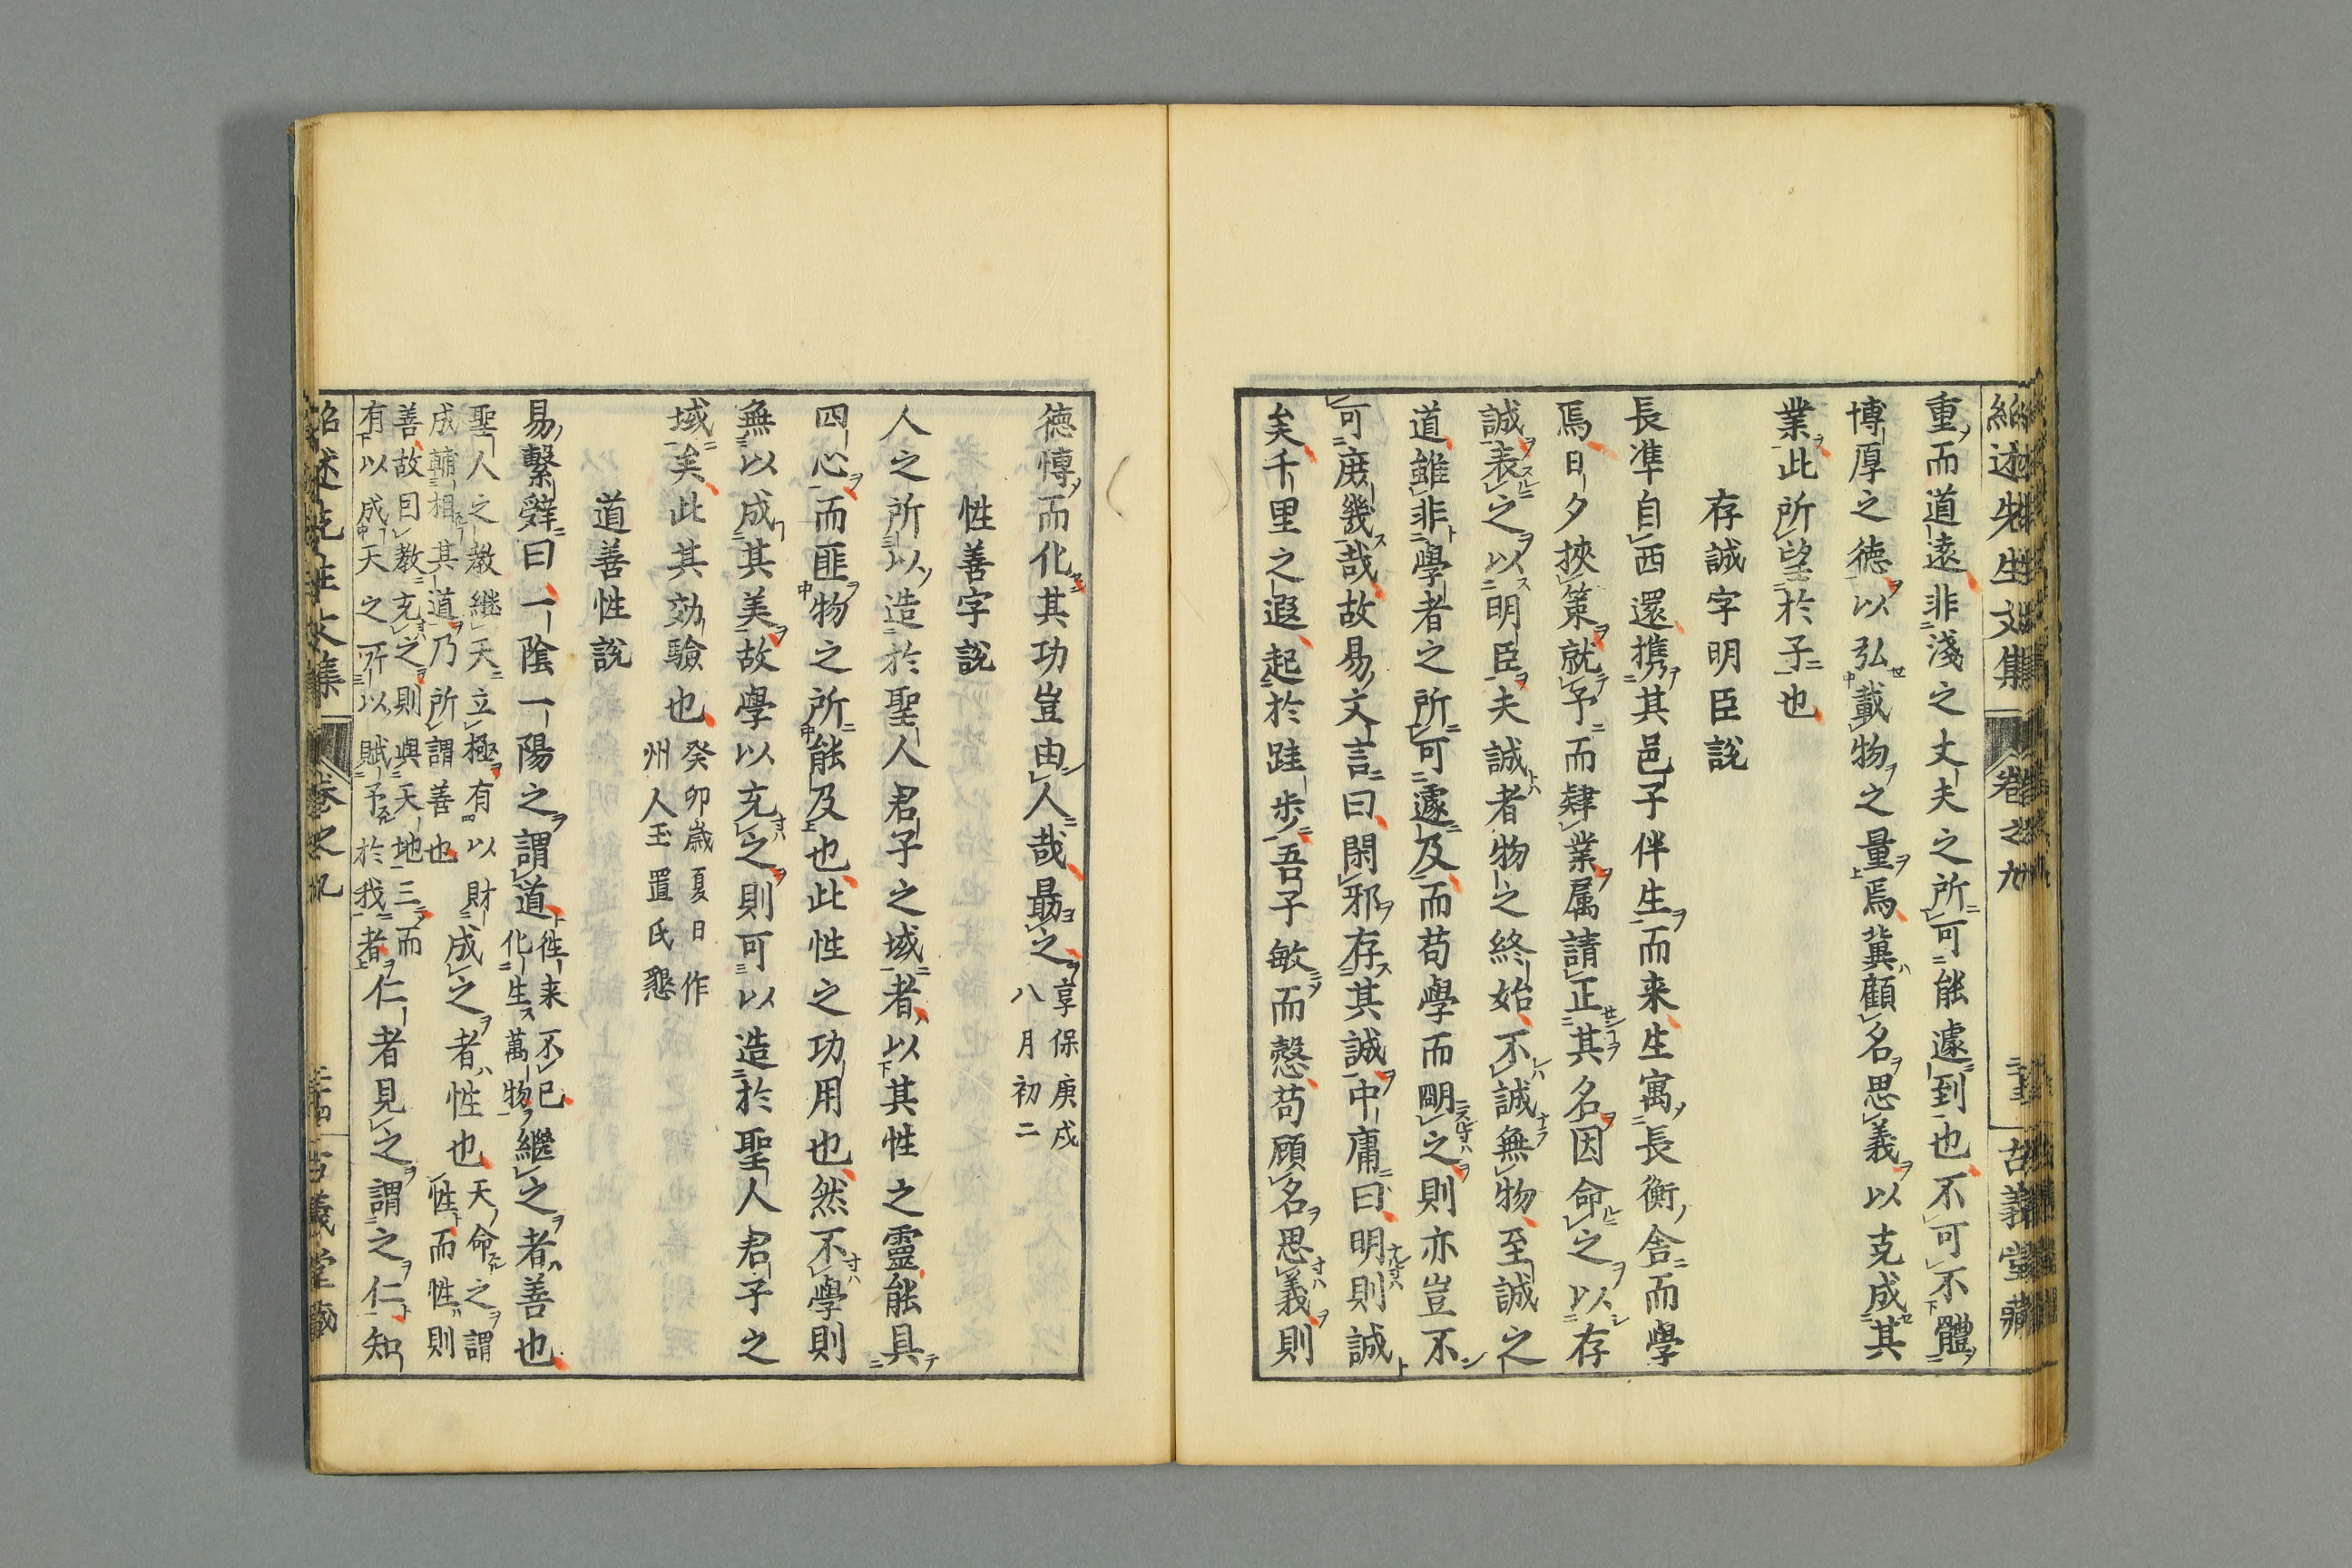 紹述先生文集 卷之九 古義堂藏
重而道遠非淺之丈夫之所可能遽到也不可不體
博厚之德以弘載物之量焉冀顧名思義以克成其
業此所望於子也
存誠字明臣說
長準自西還携其邑子伴生而来生寓長衡舎而學
焉日夕挾策就予而肄業属請正其名因命之以存
誠表之以明臣夫誠者物之終始不誠無物至誠之
道雖非學者之所可遽及而苟學而明之則亦豈不
可庶幾哉故易文言曰閑邪存其誠中庸曰明則誠
矣千里之遐起於跬歩吾子敏而愨苟顧名思義則
德博而化其功豈由人哉勗之享保庚戍
八月初二
性善字說
人之所以造於聖人君子之域者以其性之靈能具
四心而匪物之所能及也此性之功用也然不學則
無以成其美故學以充之則可以造於聖人君子之
域矣此其効驗也癸卯歳夏日作
州人玉置氏懇
道善性說
易繫辤曰一陰一陽之謂道徃来不已
化生萬物繼之者善也
聖人之教継天立極有以財
成輔相其道乃所謂善也成之者性也天命之謂
性而性則
善故曰教充之則與天地三而
有以成天之所以賦予於我者仁者見之謂之仁知
紹述先生文集 卷之九 古義堂藏